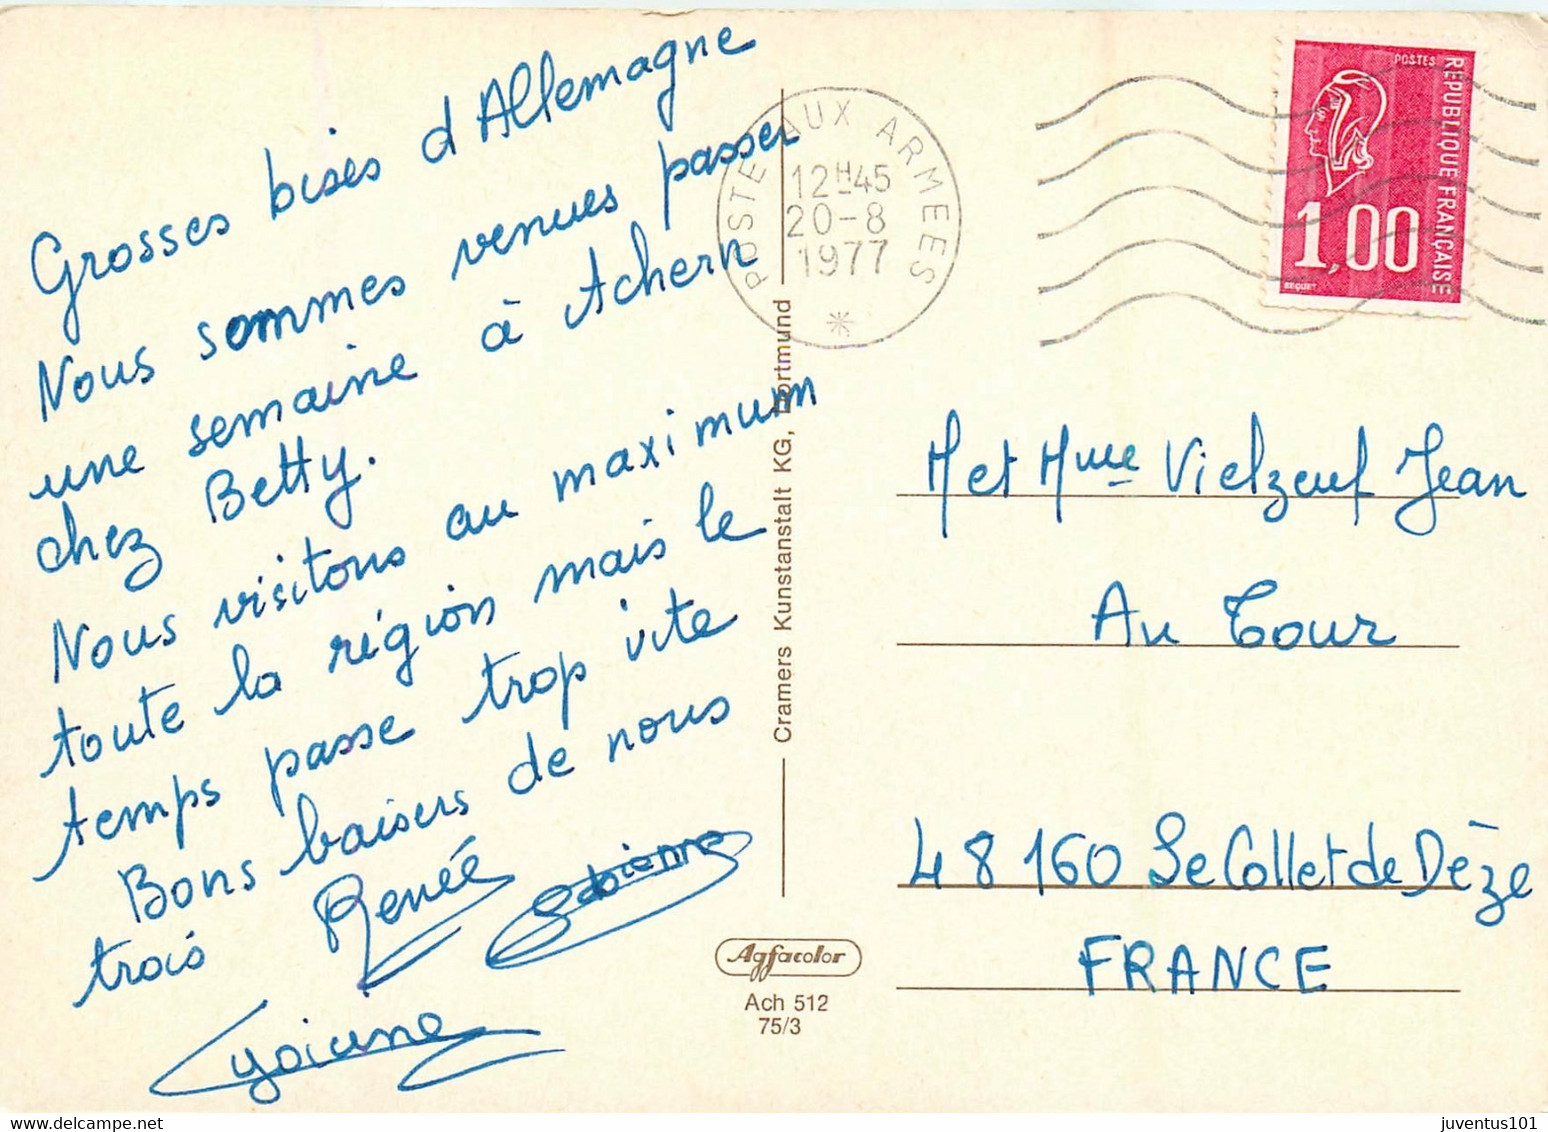 Grosses bises d'Allemagne
Nous sommes venues passer
une semaine à Achern
chez Betty.
Nous visitons au maximum
toute la région mais le
temps passe trop vite
Bons baisers de nous
trois Renée
POSTE AUX ARMEES
12H45
20-8
1977
POSTES
REPUBLIQUE FRANÇAISE
1,00
BEQUET
Cramers Kunstanstalt KG, Dortmund
M et Mme Vielzeuf Jean
Au Tour
48160 Le Collet de Dèze
FRANCE
Agfacolor
Ach 512
75/3
juventus101